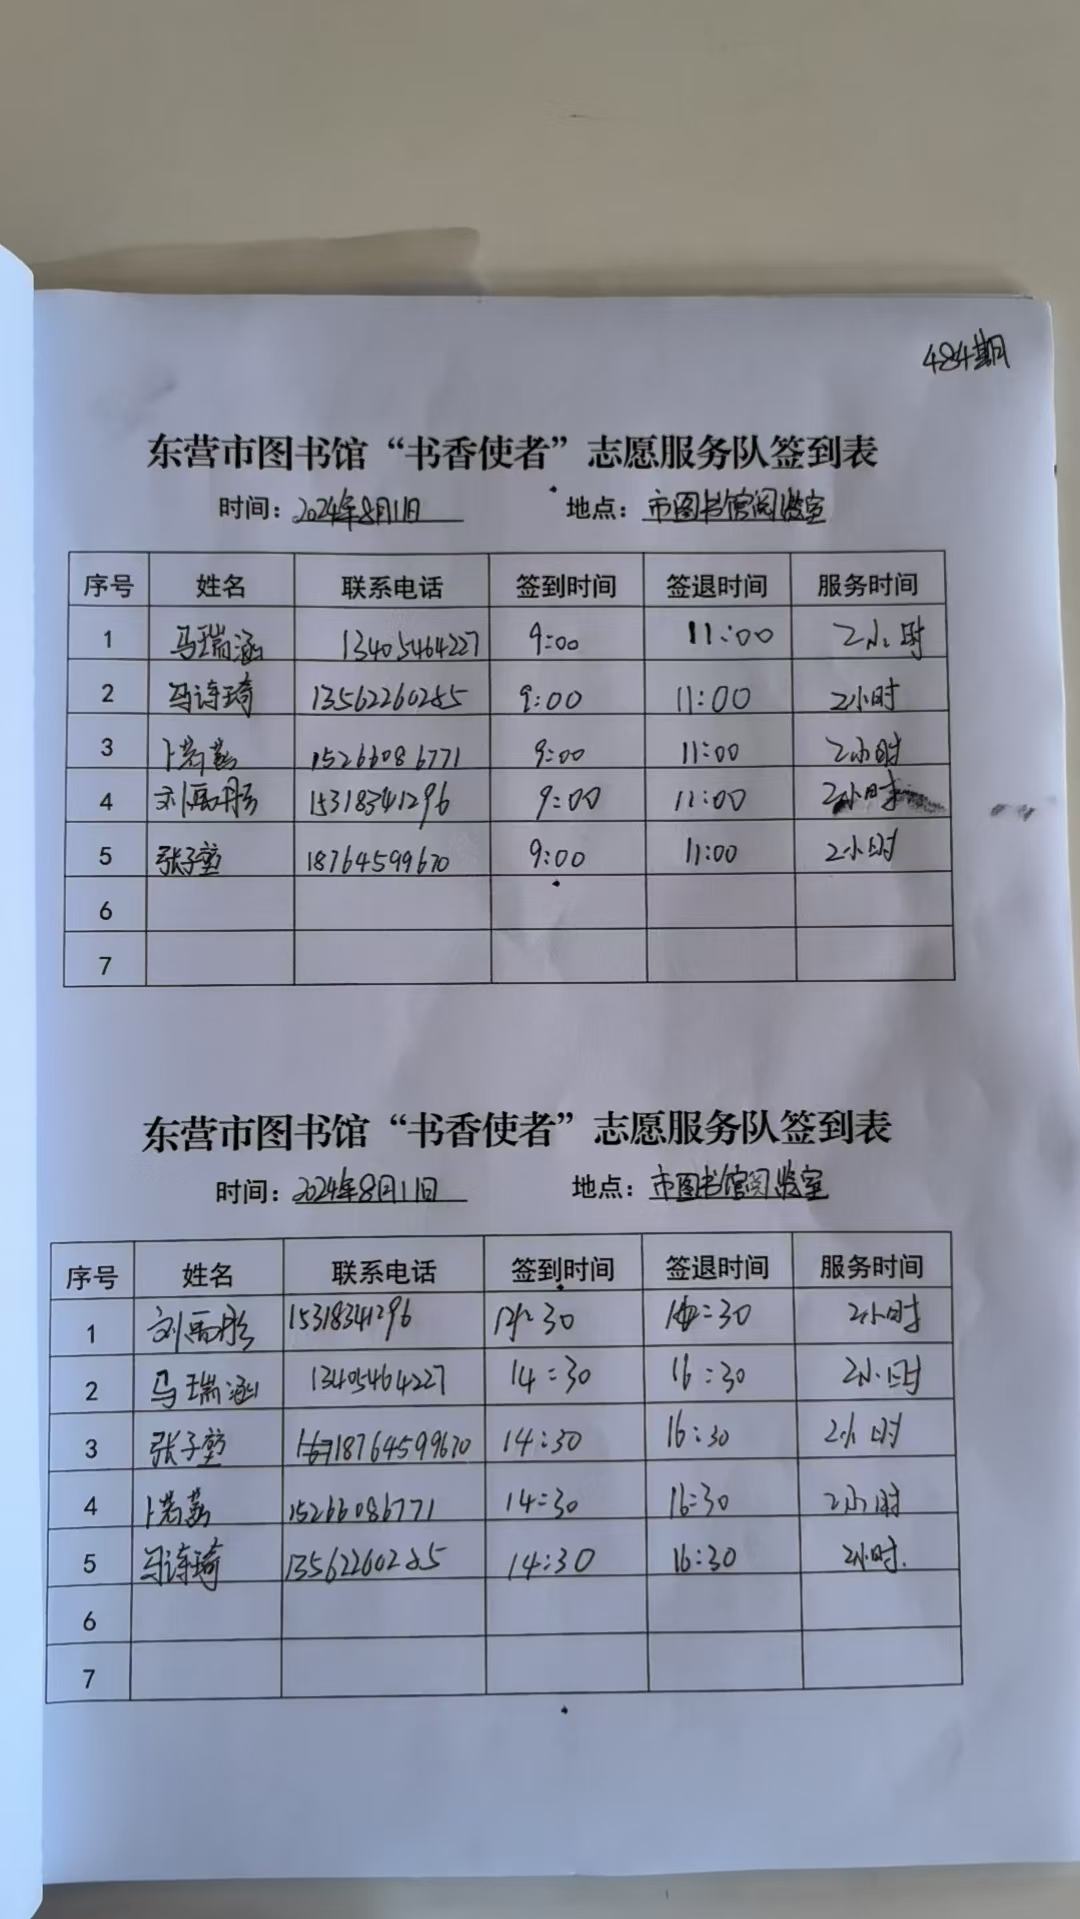 484期
东营市图书馆“书香使者”志愿服务队签到表
时间：2024年8月11日 地点：市图书馆阅览室
序号 姓名 联系电话 签到时间 签退时间 服务时间
1 马瑞涵 13405464227 9:00 11:00 2小时
2 马诗琦 13562260285 9:00 11:00 2小时
3 15266086771 9:00 11:00 2小时
4 15318341296 9:00 11:00 2小时
5 张子 18764599670 9:00 11:00 2小时
6
7
东营市图书馆“书香使者”志愿服务队签到表
时间：2024年8月11日 地点：市图书馆阅览室
序号 姓名 联系电话 签到时间 签退时间 服务时间
1 15318341296 :30 :30 2小时
2 马瑞涵 13405464227 14:30 16:30 2小时
3 张子 18764599670 14:30 16:30 2小时
4 15266086771 14:30 16:30 2小时
5 马诗琦 13562260285 14:30 16:30 2小时.
6
7